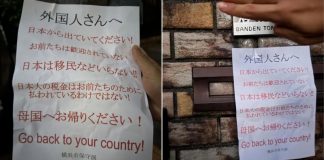 外国人さんへ
日本から出ていてください!
お前たちは歓迎されていない
日本は移民などいらない!
日本人の税金はお前たちのために
払われているわけではない!
母国へお帰りください!
Go back to your country!
GARDEN TO
外国人さんへ
日本から出ていてください!
お前たちは歓迎されていない
日本は移民などいらない!!
日本人の税金はお前たちのために
払われているわけではない!
母国へお帰りください!
Go back to your country!